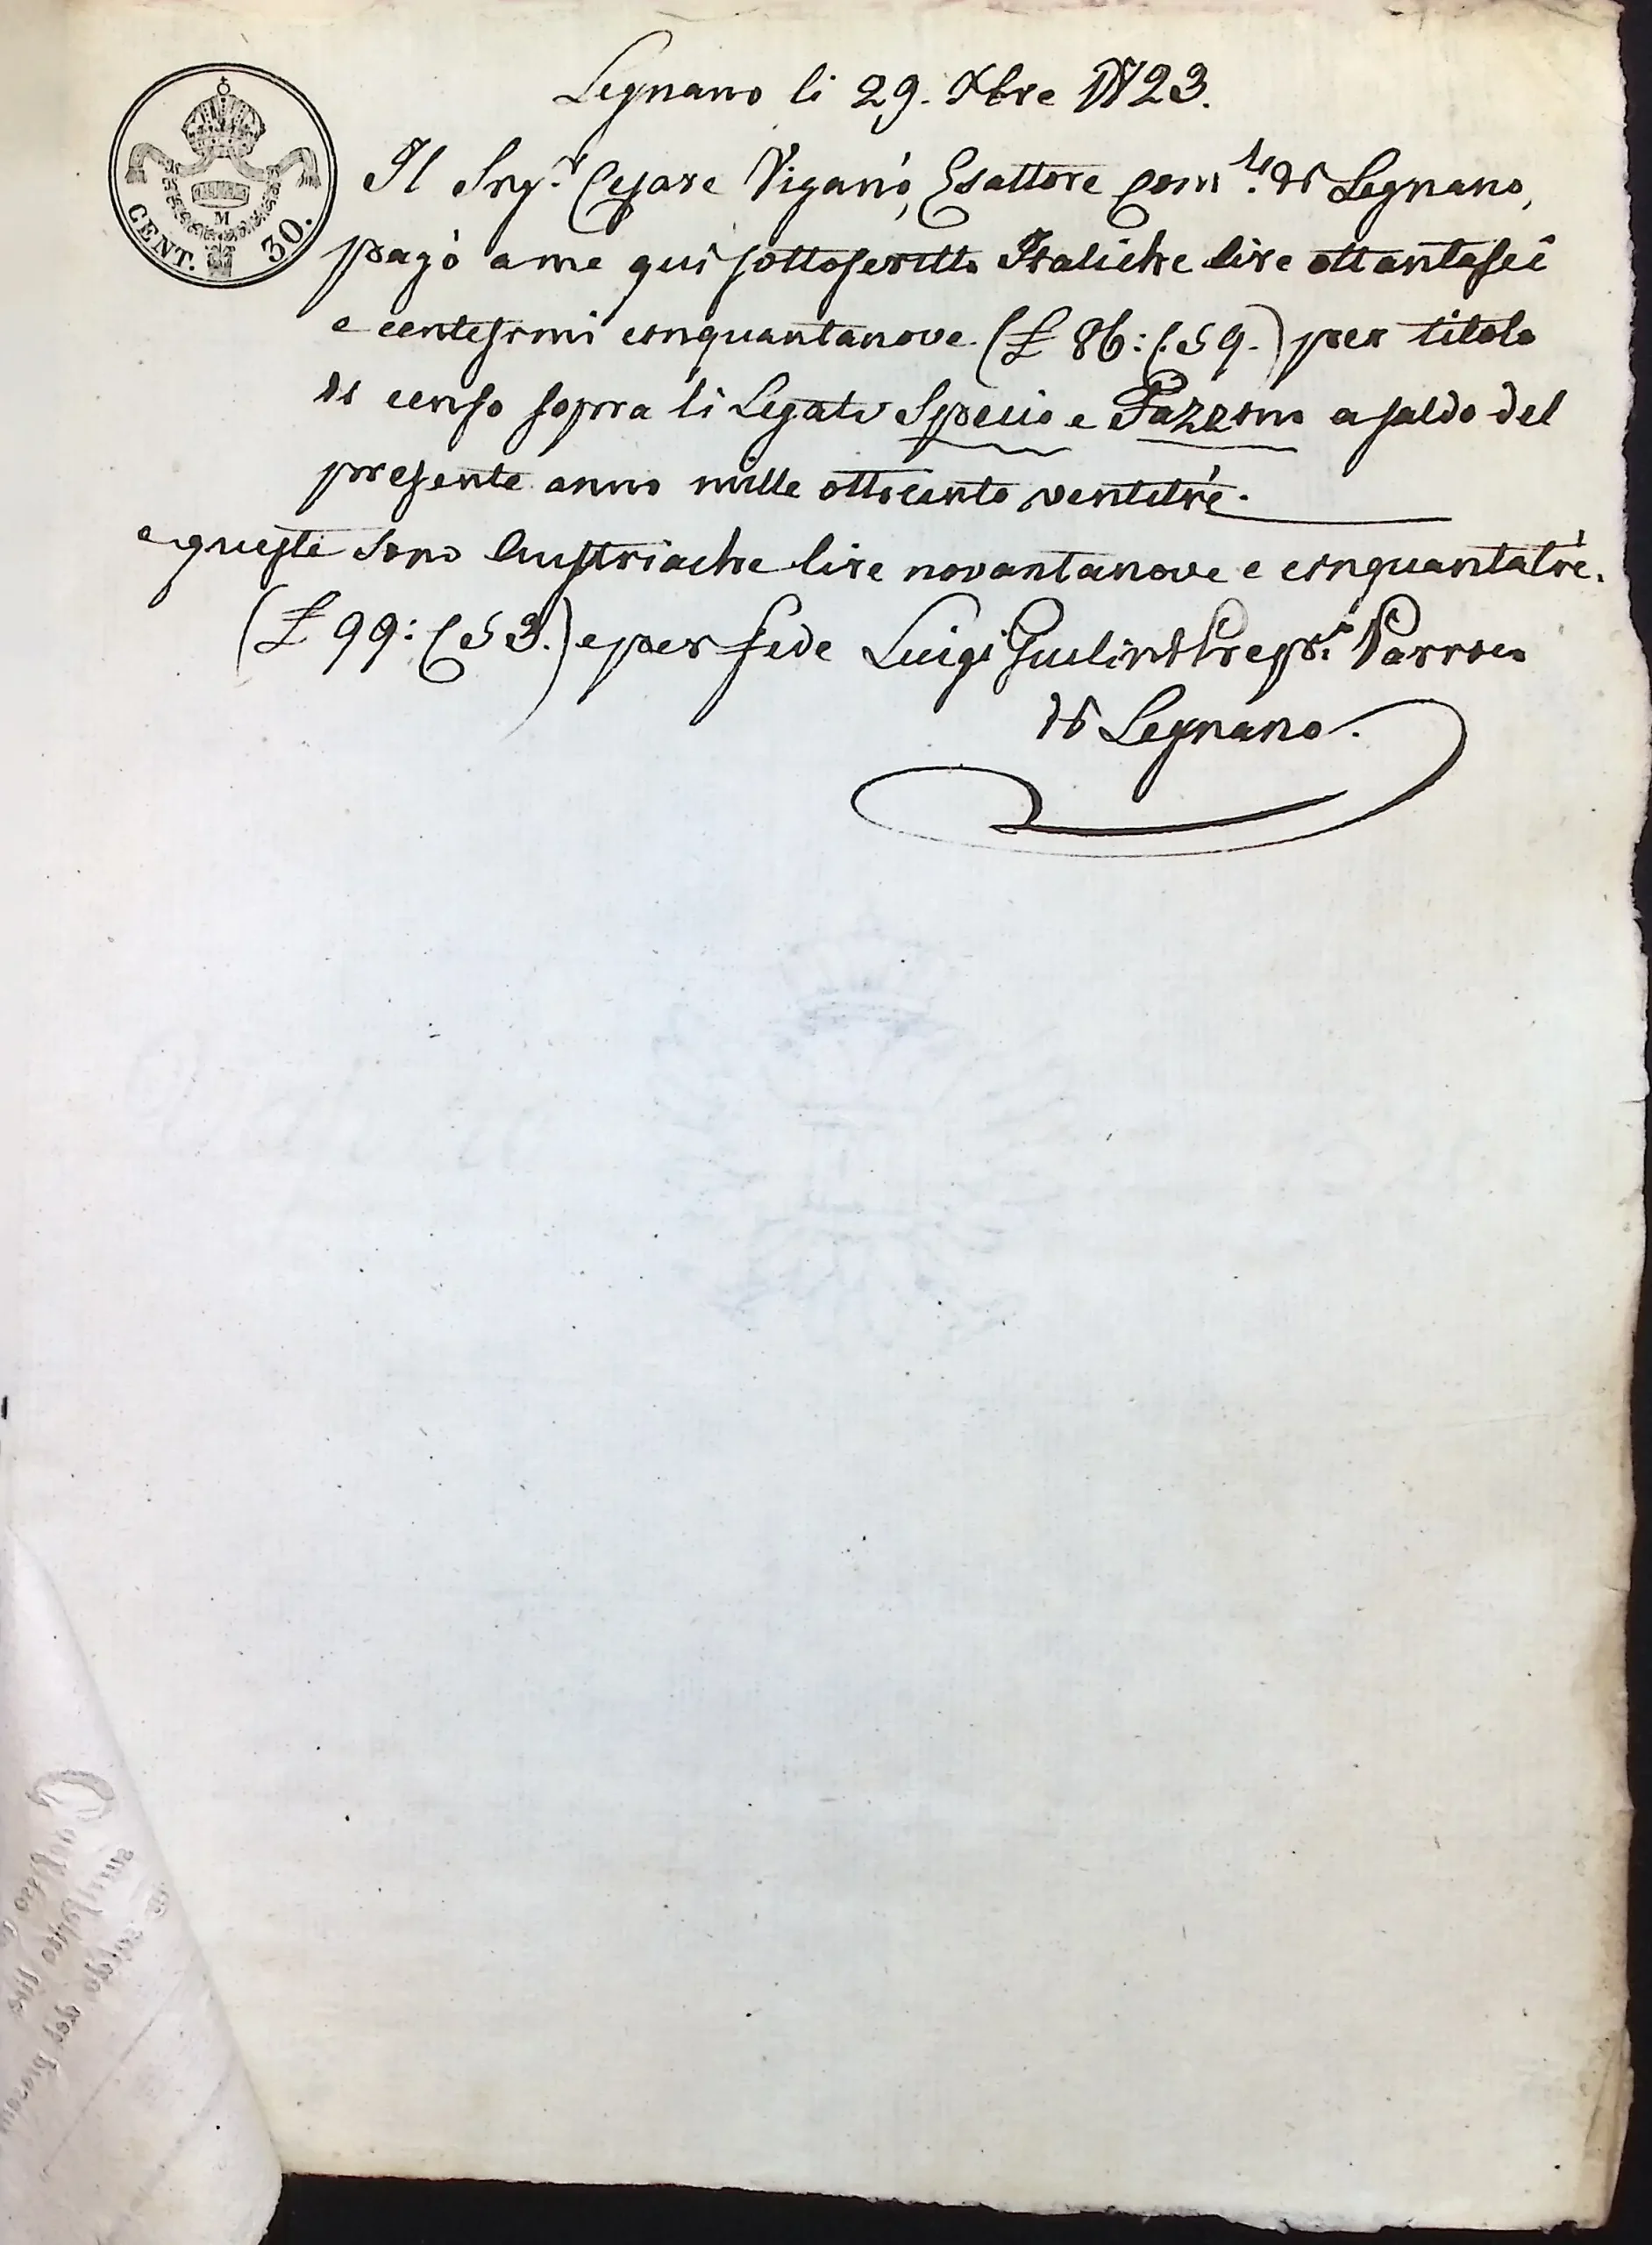 Legnano li 29. Xbre 1823.
CENT. 30.
M
Il Sig.r Cesare Viganò, Esattore Com.le di Legnano,
pagò a me qui sottoscritto Italiche lire ottantasei
e centesimi cinquantanove (£ 86: C.59.) per titolo
di censo sopra li Legati Specio e Fazzino a saldo del
presente anno mille ottocento ventitrè.
e queste sono Austriache lire novantanove e cinquantatrè.
(£ 99: C 53.) e per fede Luigi Giulini Prep.to Parroco
di Legnano.